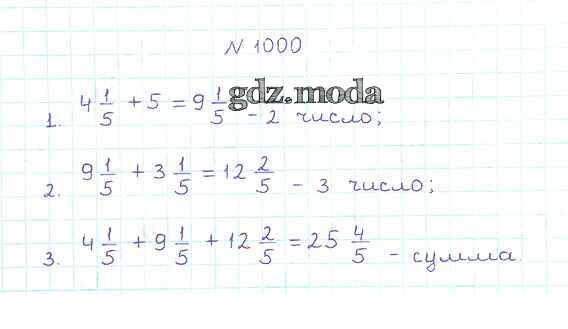 N 1000
1. 4 1/5 + 5 = 9 1/5 - 2 число;
gdz.moda
2. 9 1/5 + 3 1/5 = 12 2/5 - 3 число;
3. 4 1/5 + 9 1/5 + 12 2/5 = 25 4/5 - сумма.